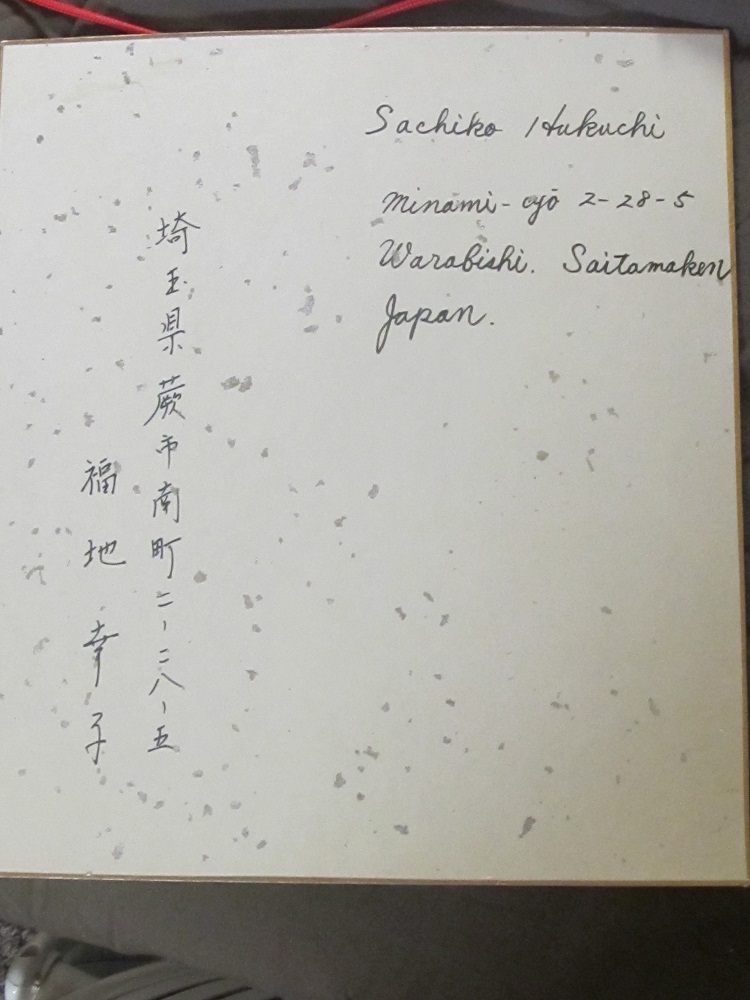 Sachiko Hukuchi
Minami-cyō 2-28-5
Warabishi. Saitamaken
Japan.
埼玉県蕨市南町二-二八-五
福地幸子